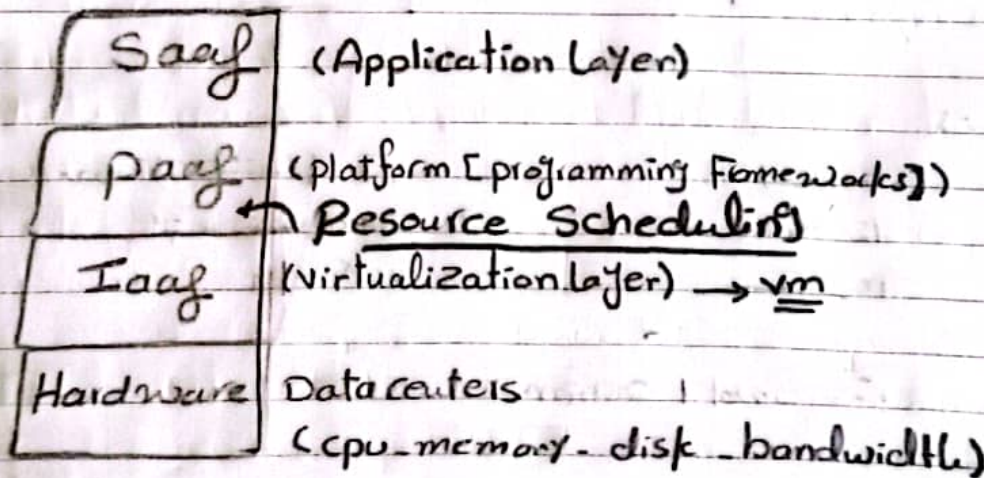 SaaS (Application Layer)
PaaS (platform [programming Fomewoks])
Resource Scheduling
IaaS (virtualization layer) → vm
Hardware Datacenters
(cpu-memory-disk-bandwidth)